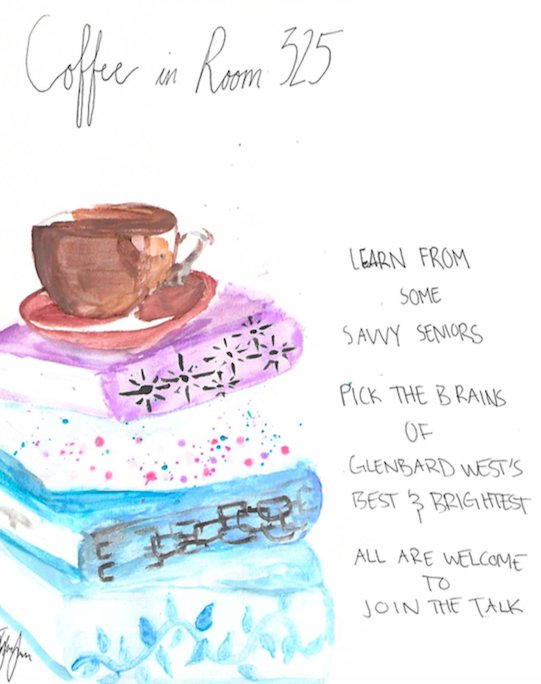 Coffee in Room 325
LEARN FROM
SOME
SAVVY SENIORS
PICK THE BRAINS
OF
GLENBARD WEST'S
BEST & BRIGHTEST
ALL ARE WELCOME
TO
JOIN THE TALK